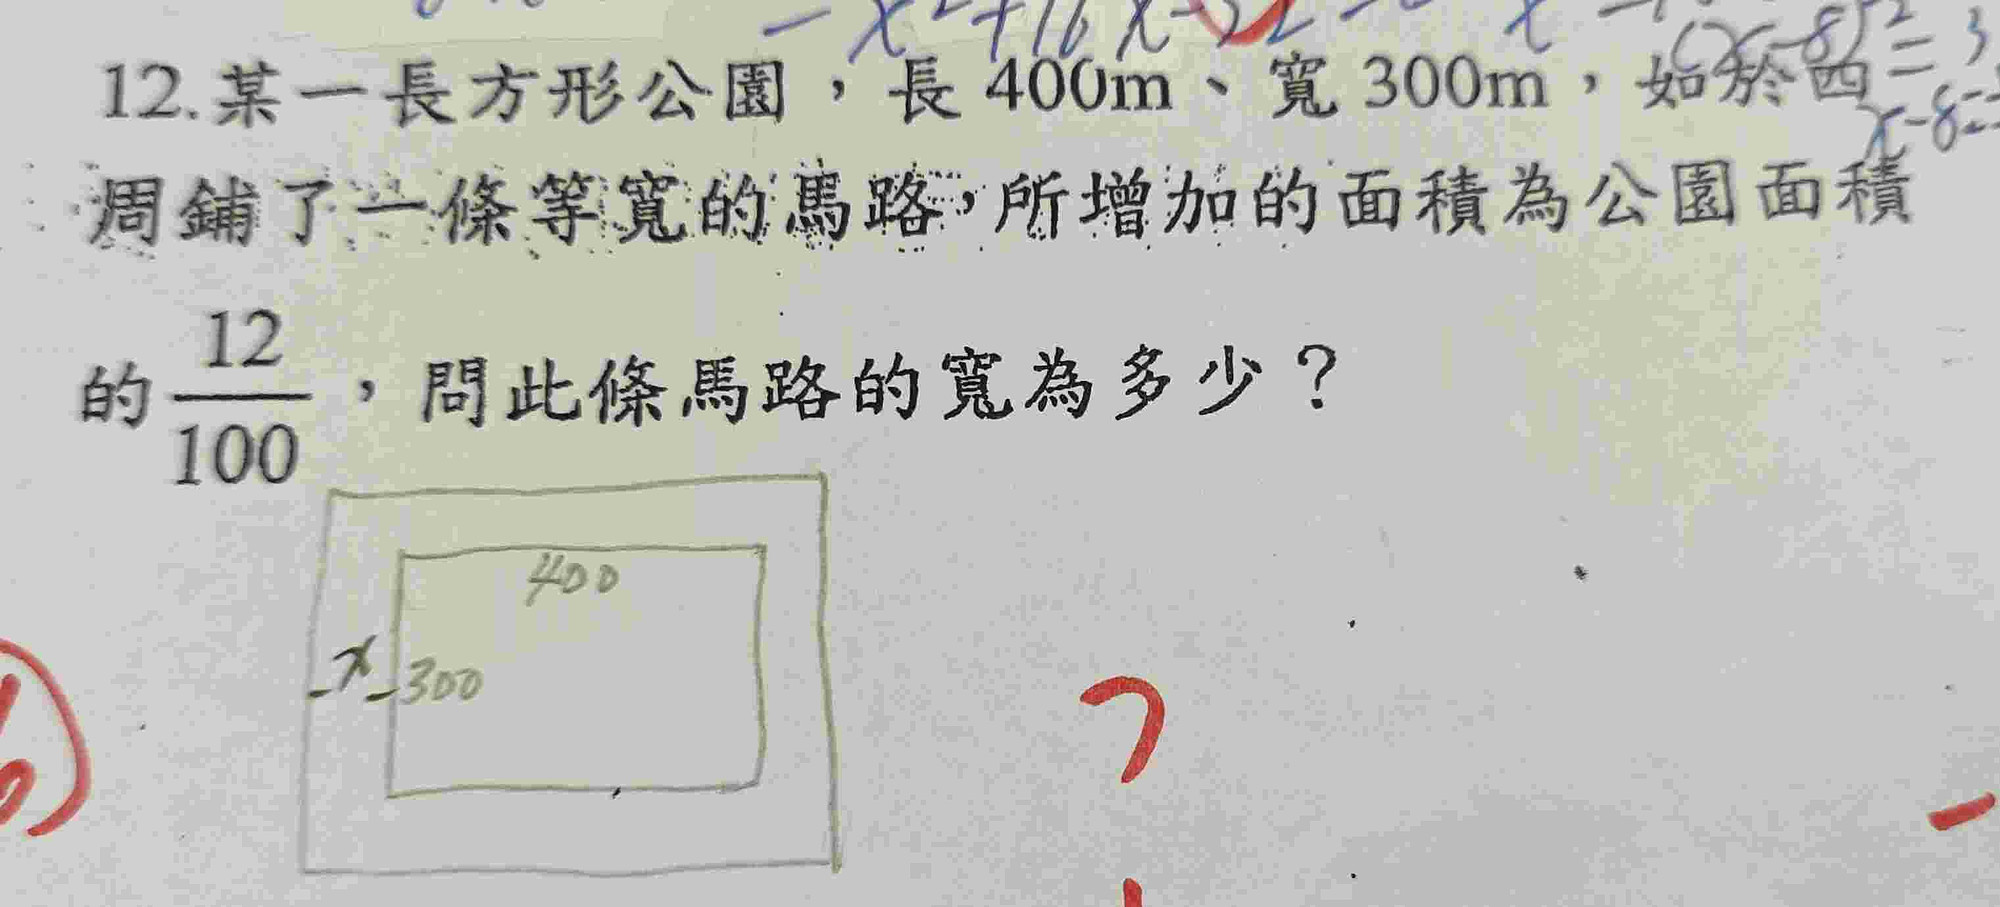 -x²+16x-32
(x-8)²=3
x-8=
12.某一長方形公園，長 400m、寬 300m，如於四
周鋪了一條等寬的馬路，所增加的面積為公園面積
的 12/100，問此條馬路的寬為多少？
400
x 300
?